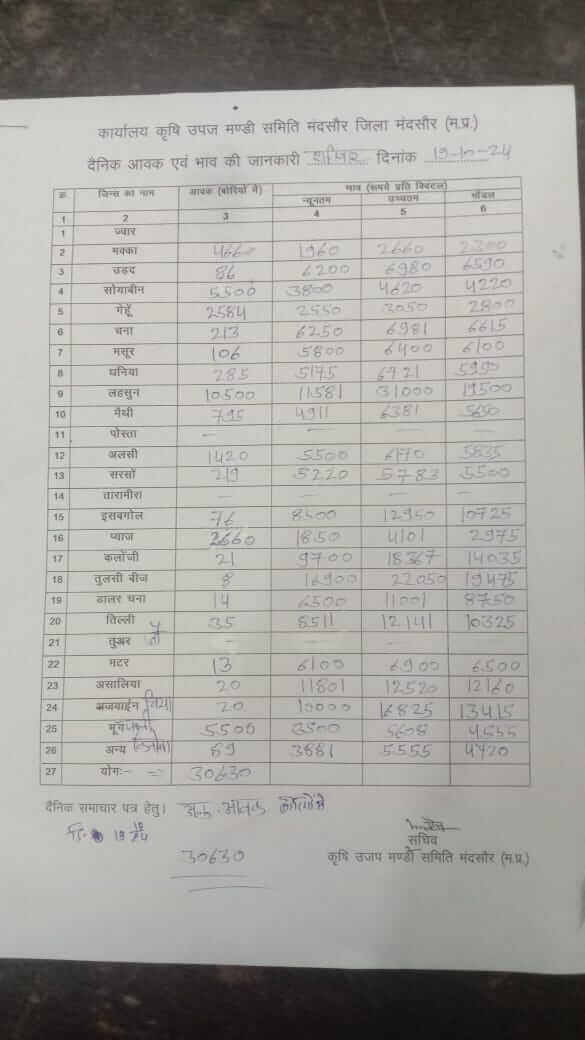 कार्यालय कृषि उपज मण्डी समिति मंदसौर जिला मंदसौर (म.प्र.)
दैनिक आवक एवं भाव की जानकारी शनिवार दिनांक 19-10-24
क्र. जिन्स का नाम आवक (बोरियों में) भाव (रूपये प्रति क्विंटल)
न्यूनतम उच्चतम मॉडल
1 2 3 4 5 6
1 ज्वार
2 मक्का 4660 1960 2660 2300
3 उड़द 86 6200 6980 6590
4 सोयाबीन 5500 3800 4620 4220
5 गेहूँ 2584 2550 3050 2800
6 चना 213 6250 6981 6615
7 मसूर 106 5800 6400 6100
8 धनिया 285 5175 6721 5950
9 लहसुन 10500 11581 31000 19500
10 मैथी 795 4911 6381 5650
11 पोस्ता — — — —
12 अलसी 1420 5500 6170 5835
13 सरसों 219 5220 5783 5500
14 तारामीरा — — — —
15 इसबगोल 76 8500 12950 10725
16 प्याज 2660 1850 4101 2975
17 कलोंजी 21 9700 18367 14035
18 तुलसी बीज 8 16900 22050 19475
19 डालर चना 14 6500 11001 8750
20 तिल्ली 35 8511 12141 10325
21 तुअर — — — —
22 मटर 13 6100 6900 6500
23 असालिया 20 11801 12520 12160
24 अजवाईन 20 10000 16825 13415
25 मूँग 5500 3500 5608 4555
26 अन्य 89 3881 5555 4720
27 योगः- 30630
दैनिक समाचार पत्र हेतु।
30630
सचिव
कृषि उजप मण्डी समिति मंदसौर (म.प्र.)